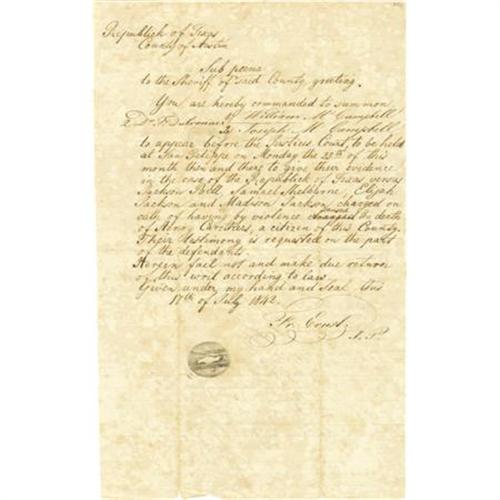 Republick of Texas
County of Austin
Sub poena
to the Sheriff of said County greeting.
You are hereby commanded to summon
William M Campbell
Joseph W Campbell
to appear before the Justices Court, to be held
at San Felippe on Monday the 25th of this
month then and there to give their evidence
in the case of the Republick of Texas versus
Jackson Bell, Samuel Shelborne, Elijah
Jackson and Madson Jackson charged on
oath of having by violence caused the death
of Henry Carothers, a citizen of this County.
Their testimony is requested on the part
of the defendants.
Herein fail not and make due return
of this writ according to law.
Given under my hand and seal this
17th of July 1842.
Fr. Ernst